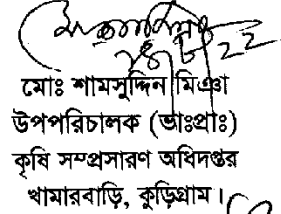 মোঃ শামসুদ্দিন মিঞা
উপপরিচালক (ভাঃপ্রাঃ)
কৃষি সম্প্রসারণ অধিদপ্তর
খামারবাড়ি, কুড়িগ্রাম।